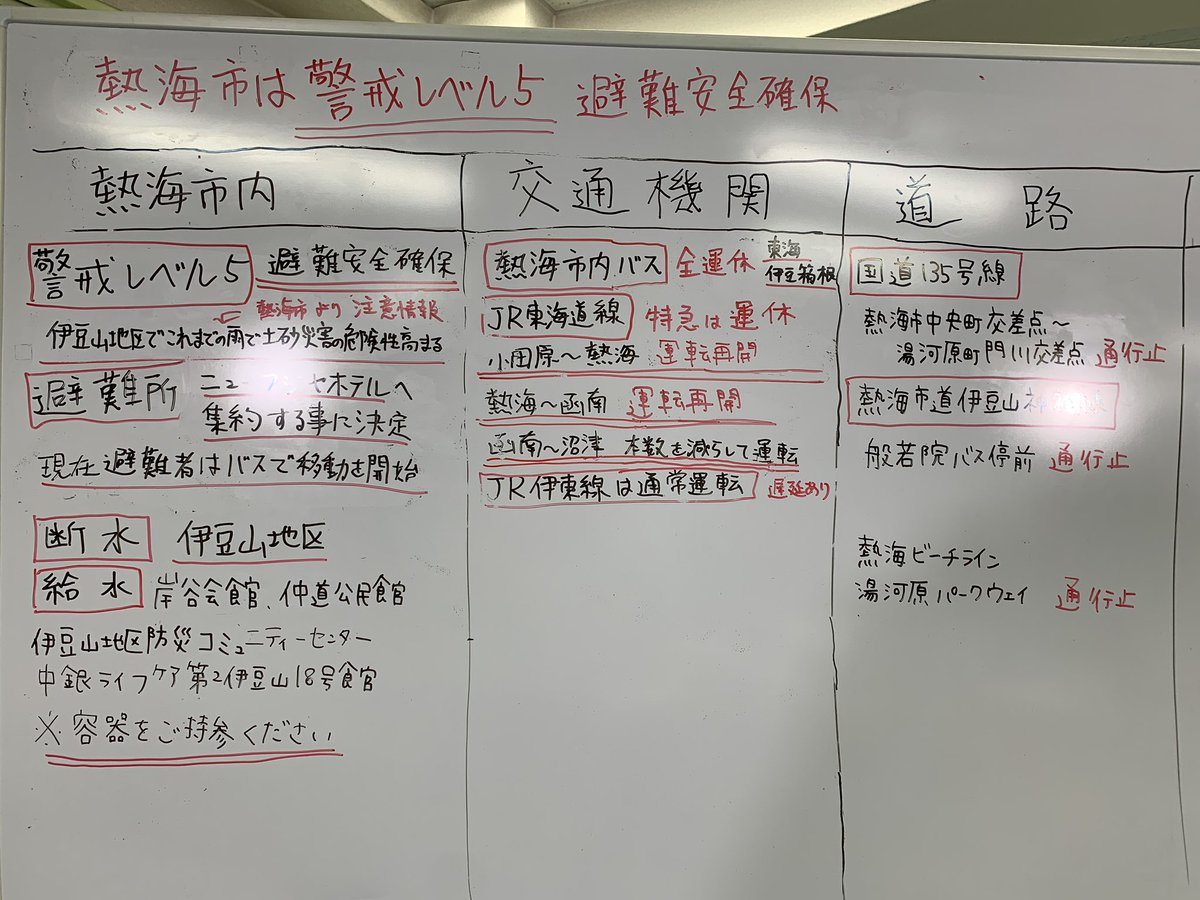 熱海市は警戒レベル5 避難安全確保
熱海市内
警戒レベル5 避難安全確保
熱海市より 注意情報
伊豆山地区でこれまでの雨で土砂災害の危険性高まる
避難所 ニューフジヤホテルへ
集約する事に決定
現在避難者はバスで移動を開始
断水 伊豆山地区
給水 岸谷会館、仲道公民館
伊豆山地区防災コミュニティーセンター
中銀ライフケア第2伊豆山18号館
※容器をご持参ください
交通機関
熱海市内バス 全運休 東海
伊豆箱根
JR東海道線 特急は運休
小田原～熱海 運転再開
熱海～函南 運転再開
函南～沼津 本数を減らして運転
JR伊東線は通常運転 遅延あり
道路
国道135号線
熱海市中央町交差点～
湯河原町門川交差点 通行止
熱海市道伊豆山神社
般若院バス停前 通行止
熱海ビーチライン
湯河原パークウェイ 通行止